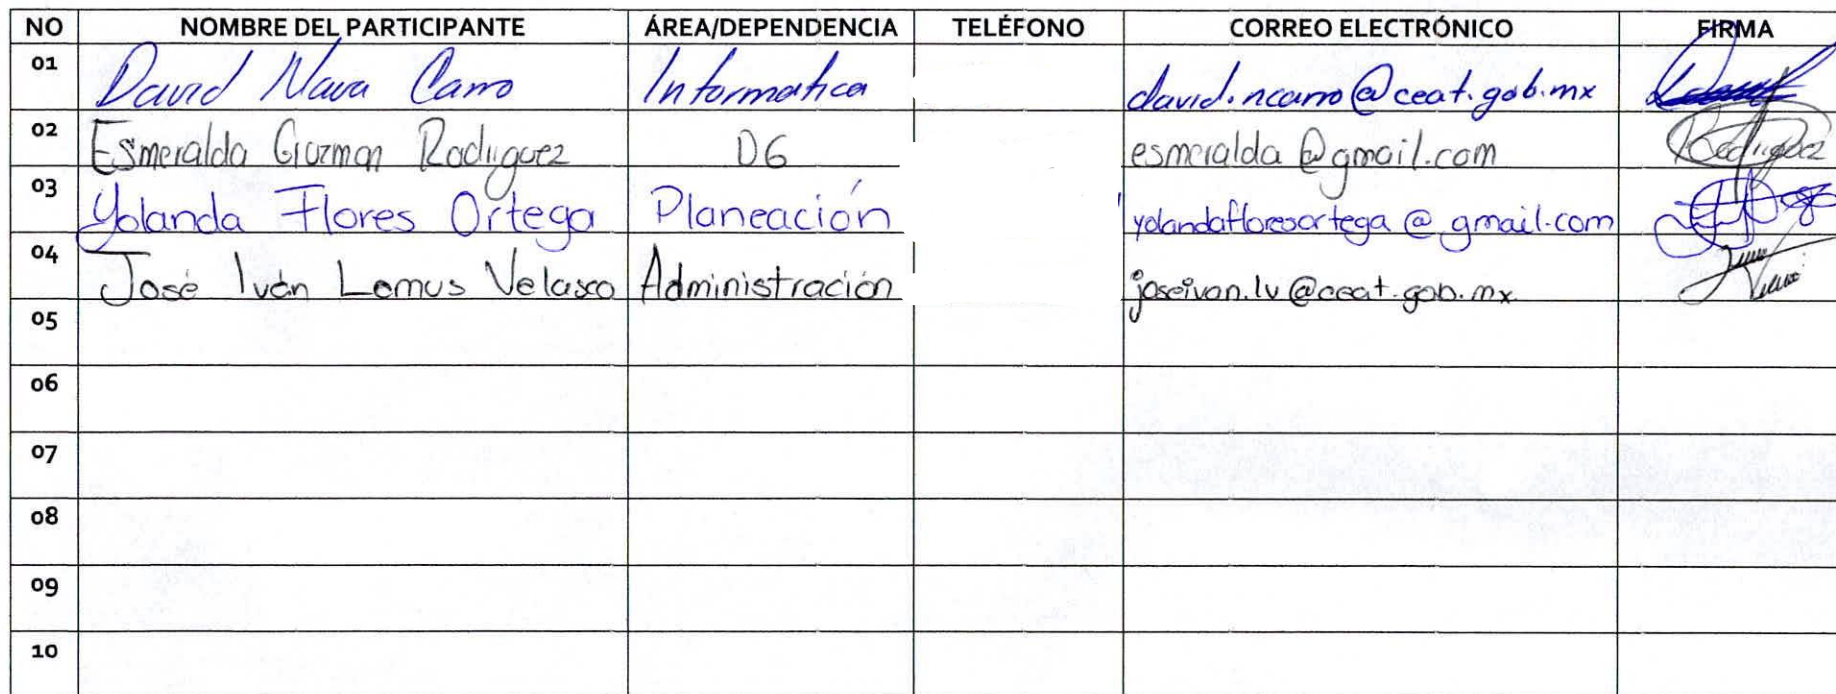 NO NOMBRE DEL PARTICIPANTE ÁREA/DEPENDENCIA TELÉFONO CORREO ELECTRÓNICO FIRMA
01 David Nava Carro Informatica david.ncarro@ceat.gob.mx
02 Esmeralda Guzman Rodriguez DG esmeralda@gmail.com Rodriguez
03 Yolanda Flores Ortega Planeación yolandafloresortega@gmail.com
04 José Iván Lemus Velasco Administración joseivan.lv@ceat.gob.mx
05
06
07
08
09
10